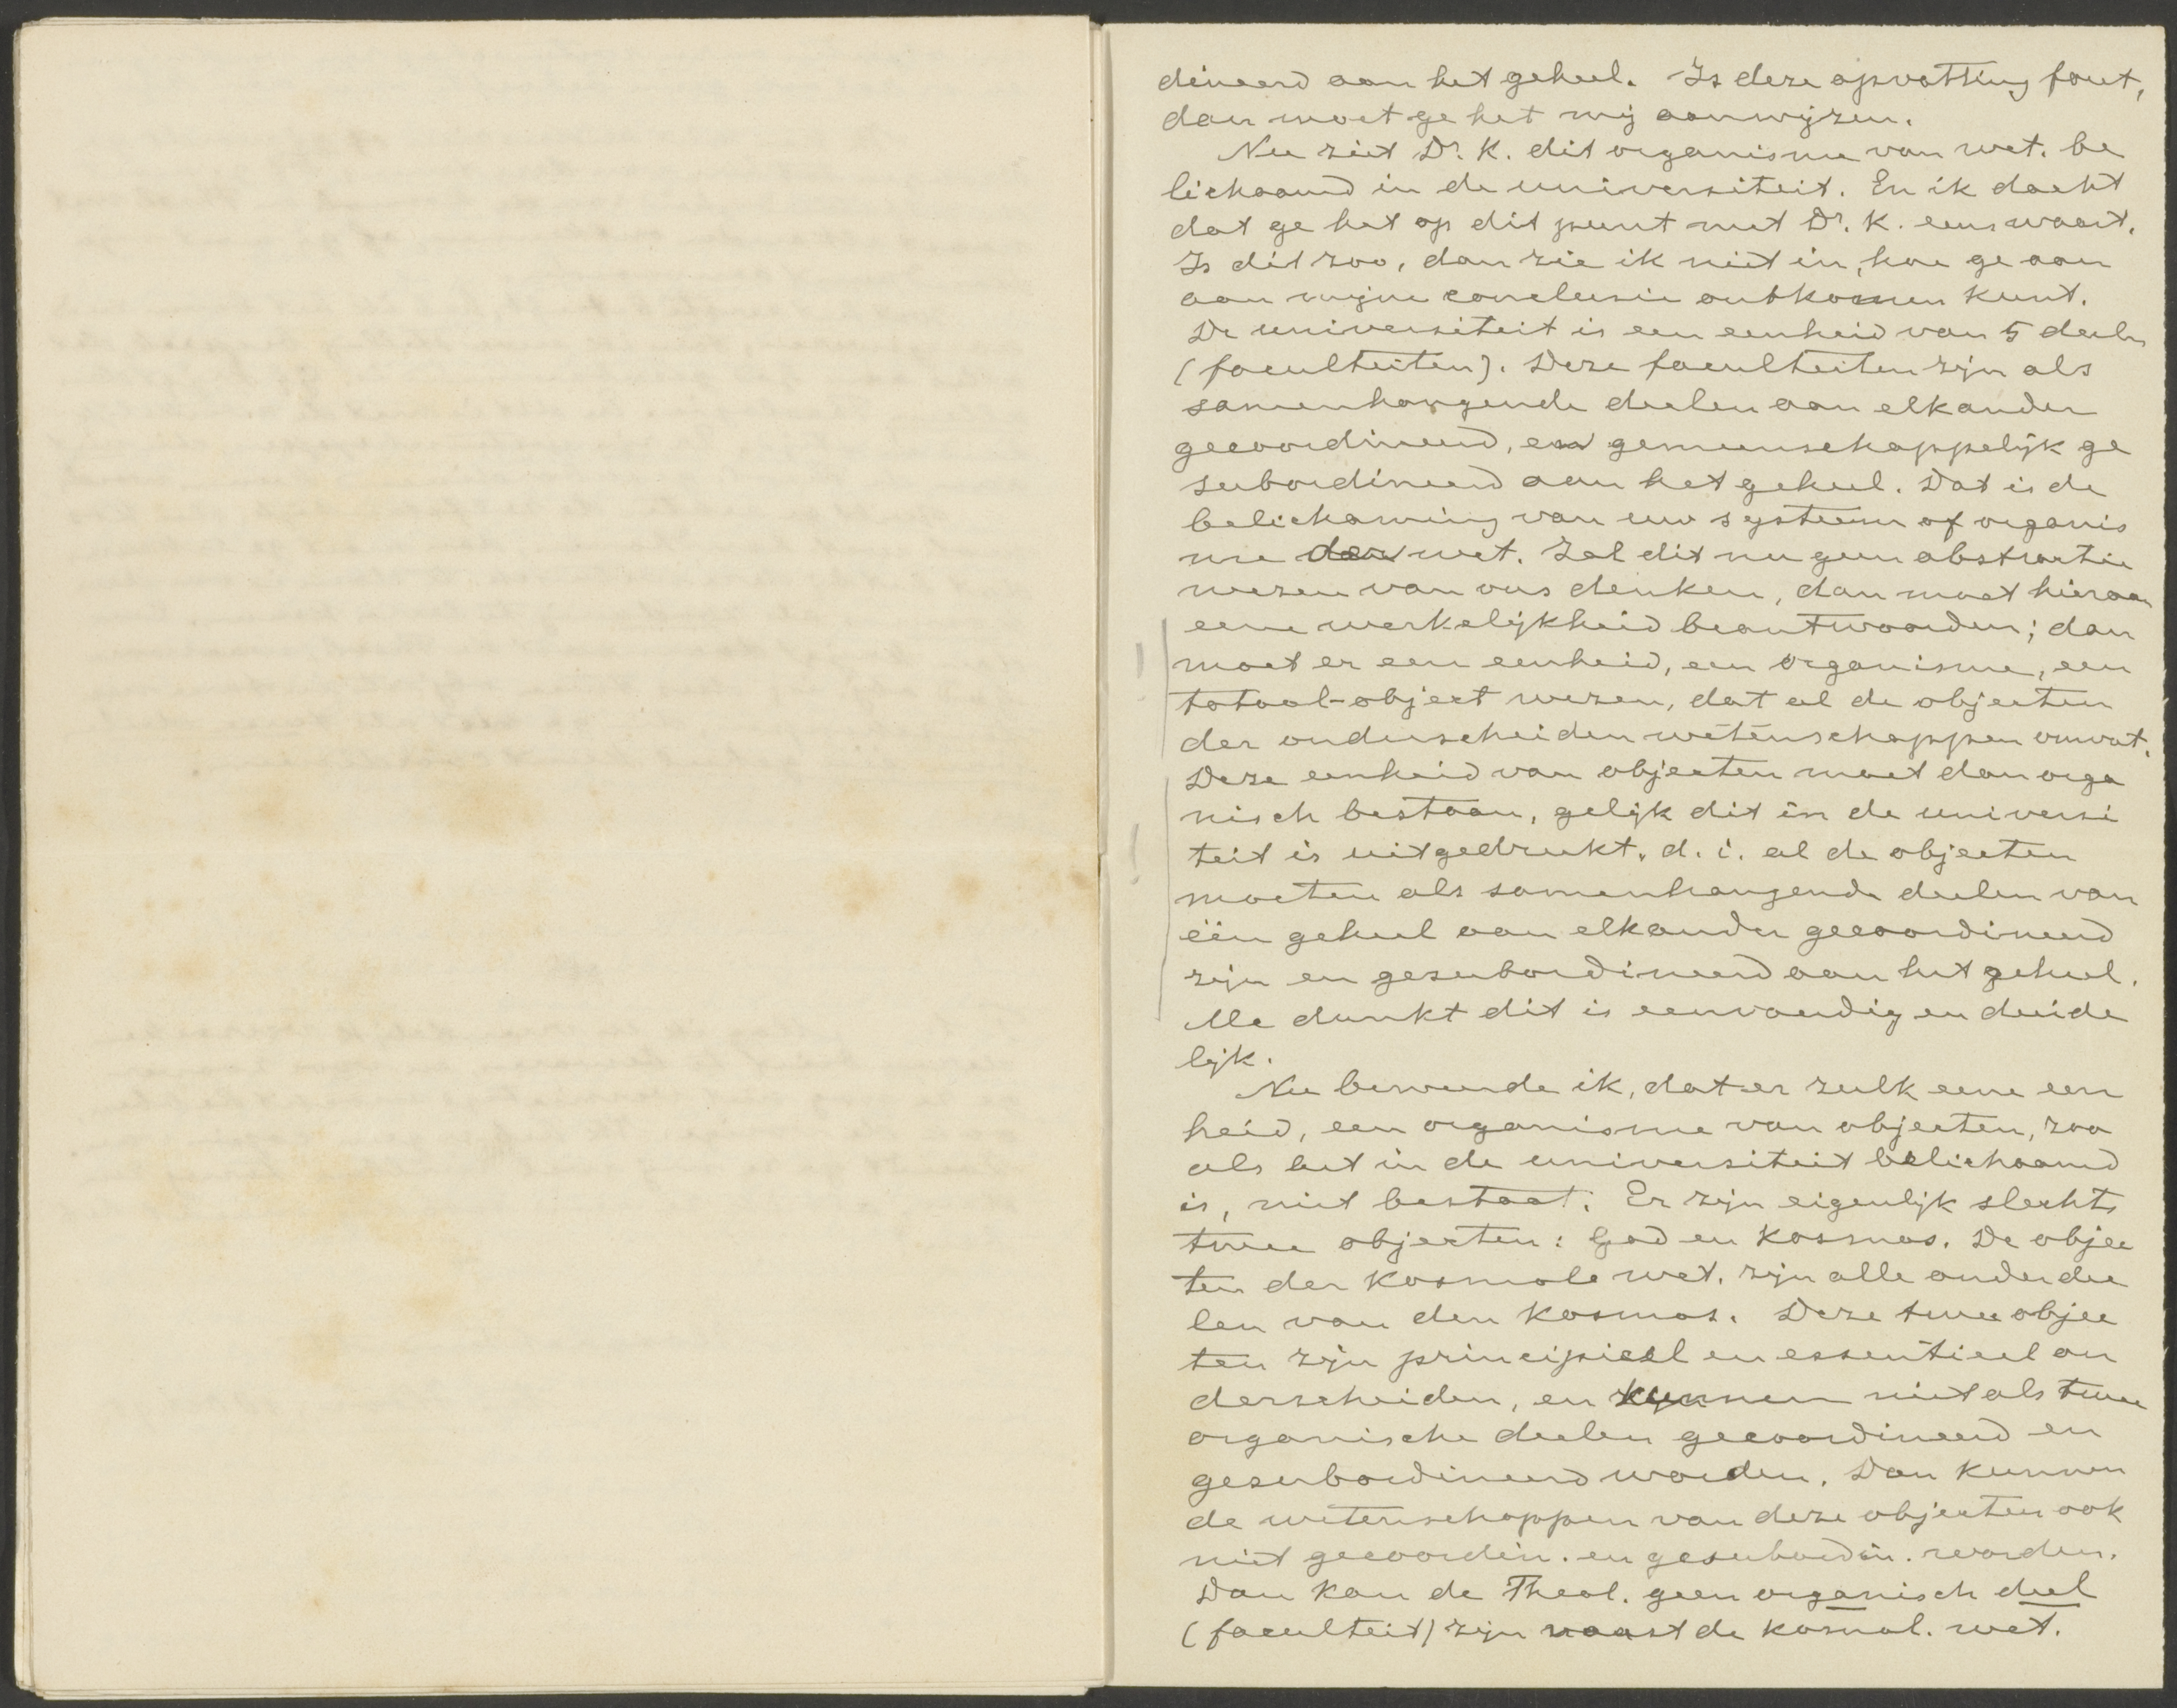 dineerd aan het geheel. Is deze opvatting fout,
dan moet ge het mij aanwijzen.
Nu ziet Dr. K. dit organisme van wet. be
lichaamd in de universiteit. En ik dacht
dat ge het op dit punt met Dr. K. eens waart.
Is dit zoo, dan zie ik niet in, hoe ge aan
aan mijne conclusie ontkomen kunt.
De universiteit is een eenheid van 5 deelen
(faculteiten). Deze faculteiten zijn als
samenhangende deelen aan elkander
gecoordineerd, en gemeenschappelijk ge
subordineerd aan het geheel. Dat is de
belichaming van uw systeem of organis
me der wet. Zal dit nu geen abstractie
wezen van ons denken, dan moet hieraan
eene werkelijkheid beantwoorden; dan
moet er een eenheid, een organisme, een
totaal-object wezen, dat al de objecten
der onderscheiden wetenschappen omvat.
Deze eenheid van objecten moet dan orga
nisch bestaan, gelijk dit in de universi
teit is uitgedrukt, d. i. al de objecten
moeten als samenhangende deelen van
één geheel aan elkander gecoordineerd
zijn en gesubordineerd aan het geheel.
Me dunkt dit is eenvoudig en duide
lijk.
Nu beweerde ik, dat er zulk eene een
heid, een organisme van objecten, zoo
als het in de universiteit belichaamd
is, niet bestaat. Er zijn eigenlijk slechts
twee objecten: God en Kosmos. De objec
ten der Kosmole wet. zijn alle onderdee
len van den Kosmos. Deze twee objec
ten zijn principieel en essentieel on
derscheiden, en kunnen niet als twee
organische deelen gecoordineerd en
gesubordineerd worden. Dan kunnen
de wetenschappen van deze objecten ook
niet gecoordin. en gesubordin. worden.
Dan kan de Theol. geen organisch deel
(faculteit) zijn naast de kosmol. wet.